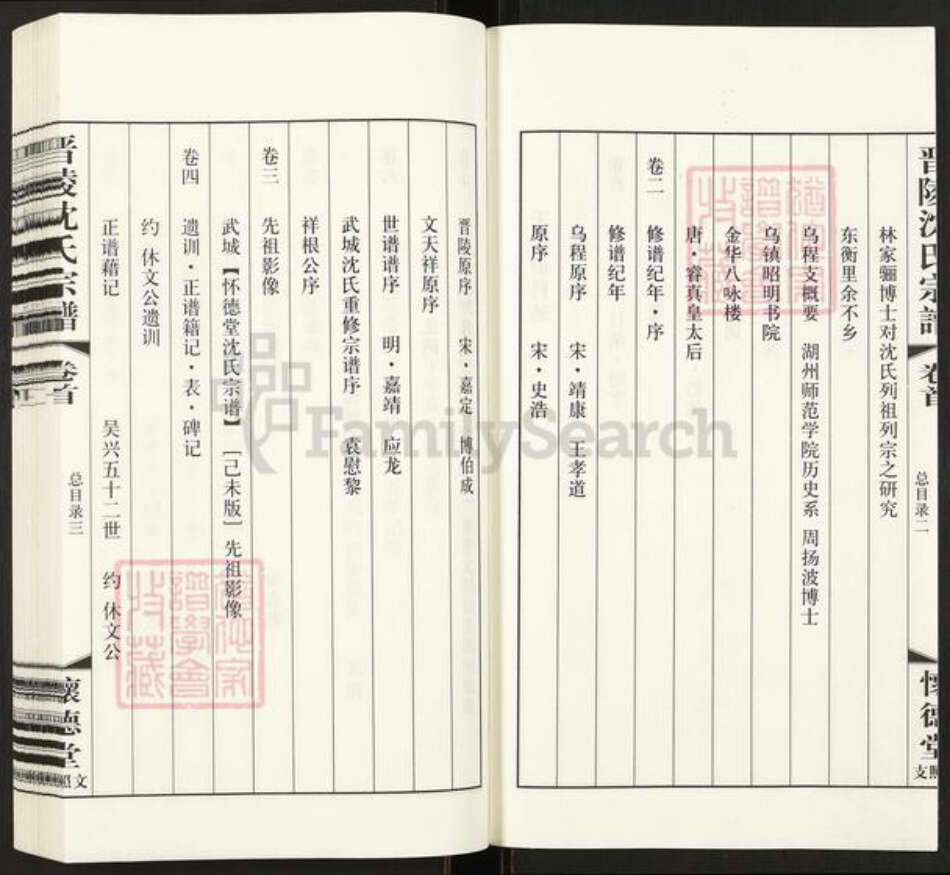 晋陵沈氏宗谱
卷首
总目录二
怀德堂
照文支
林家骊博士对沈氏列祖列宗之研究
东衡里余不乡
乌程支概要 湖州师范学院历史系 周扬波博士
乌镇昭明书院
金华八咏楼
唐·睿真皇太后
卷二 修谱纪年·序
修谱纪年
乌程原序 宋·靖康 王孝道
原序 宋·史浩
晋陵原序 宋·嘉定 博伯成
文天祥原序
世谱谱序 明·嘉靖 应龙
武城沈氏重修宗谱序 袁慰黎
祥根公序
卷三 先祖影像
武城【怀德堂沈氏宗谱】［己未版］先祖影像
卷四 遗训·正谱籍记·表·碑记
约 休文公遗训
正谱藉记 吴兴五十二世 约 休文公
晋陵沈氏宗谱
卷首
总目录三
懷德堂
FamilySearch